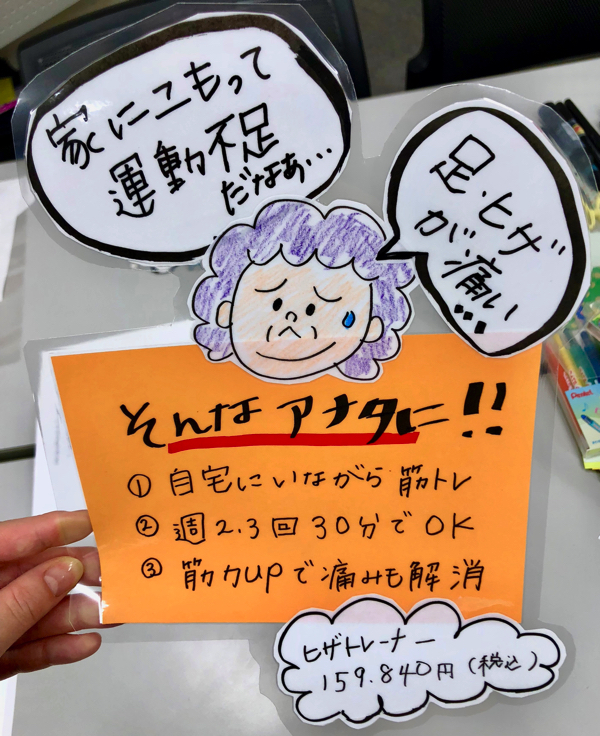 家にこもって
運動不足
だなぁ…
足・ヒザ
が痛い…
そんなアナタに!!
① 自宅にいながら筋トレ
② 週2.3回30分でOK
③ 筋力upで痛みも解消
ヒザトレーナー
159.840円(税込)
Pentel